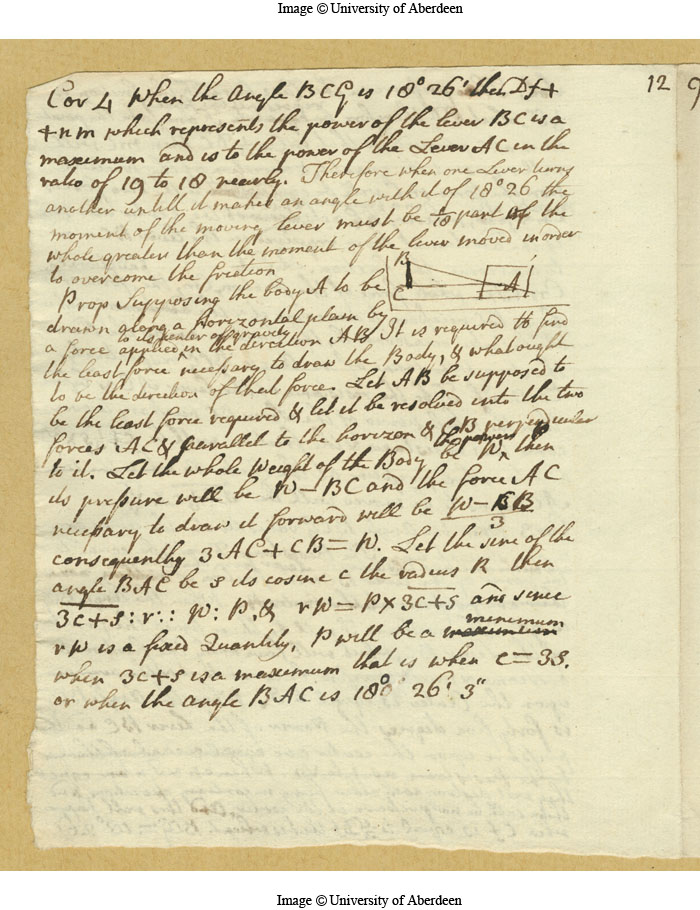 Image © University of Aberdeen
12
Cor 4 When the Angle BCG is 18° 26' then Df +
+ n m which represents the power of the lever BC is a
maximum and is to the power of the Lever AC in the
ratio of 19 to 18 nearly. Therefore when one Lever turns
another untill it makes an angle with it of 18° 26' the
moment of the moving lever must be 1/18 part of the
whole greater than the moment of the lever moved in order
to overcome the friction
B
C
A
Prop Supposing the body A to be
drawn along a horizontal plain by
to its center of gravity
a force applied in the direction AB It is required to find
the least force necessary to draw the Body, & what ought
to be the direction of that force. Let AB be supposed to
be the least force required & let it be resolved into the two
forces AC & parallel to the horizon & CB perpendicular
to it. Let the whole Weight of the Body be W, then
its pressure will be W – BC and the force AC
necessary to draw it forward will be W – CB / 3
consequently 3 AC + CB = W. Let the sine of the
angle BAC be s its cosine c the radius R then
3c + s : r :: W : P, & rW = P × 3c + s and since
rW is a fixed Quantity, P will be a maximum minimum
when 3c + s is a maximum that is when c = 3s.
or when the angle BAC is 18° 26' 3"
Image © University of Aberdeen